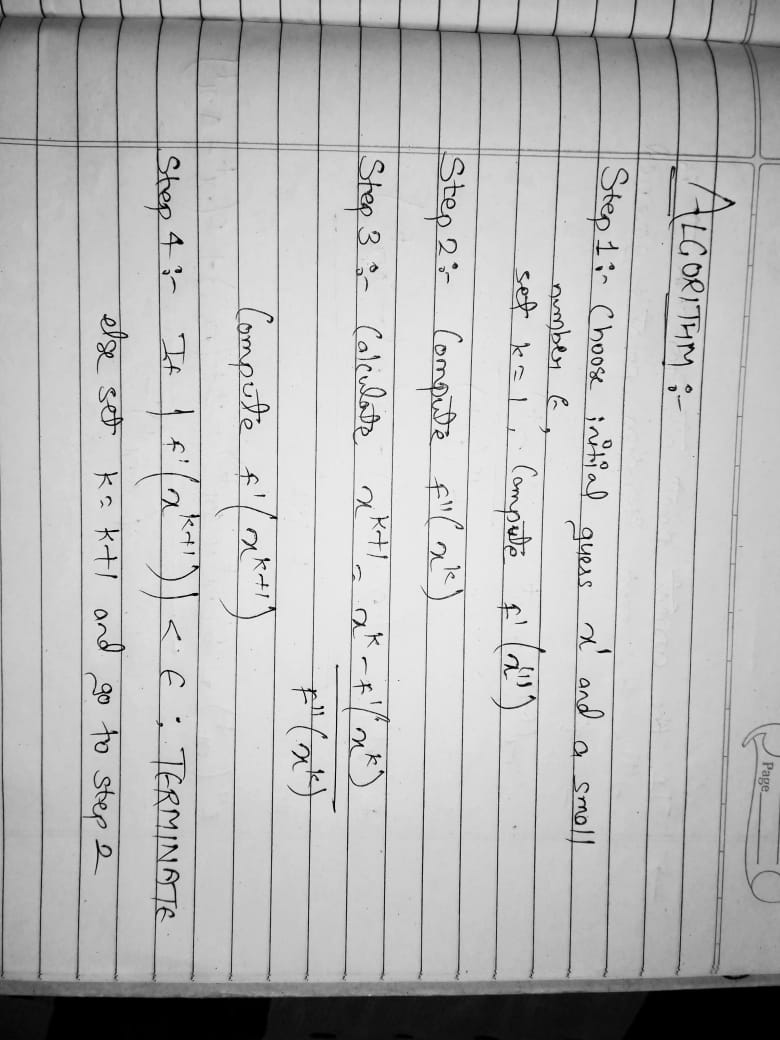 Page
ALGORITHM :-
Step 1 :- Choose initial guess x¹ and a small
number ϵ,
set k = 1, Compute f'(x⁽¹⁾)
Step 2 :- Compute f''(xᵏ)
Step 3 :- Calculate xᵏ⁺¹ = xᵏ - f'(xᵏ)
f''(xᵏ)
Compute f'(xᵏ⁺¹)
Step 4 :- If | f'(xᵏ⁺¹)| < ϵ ; TERMINATE
else set k = k+1 and go to step 2